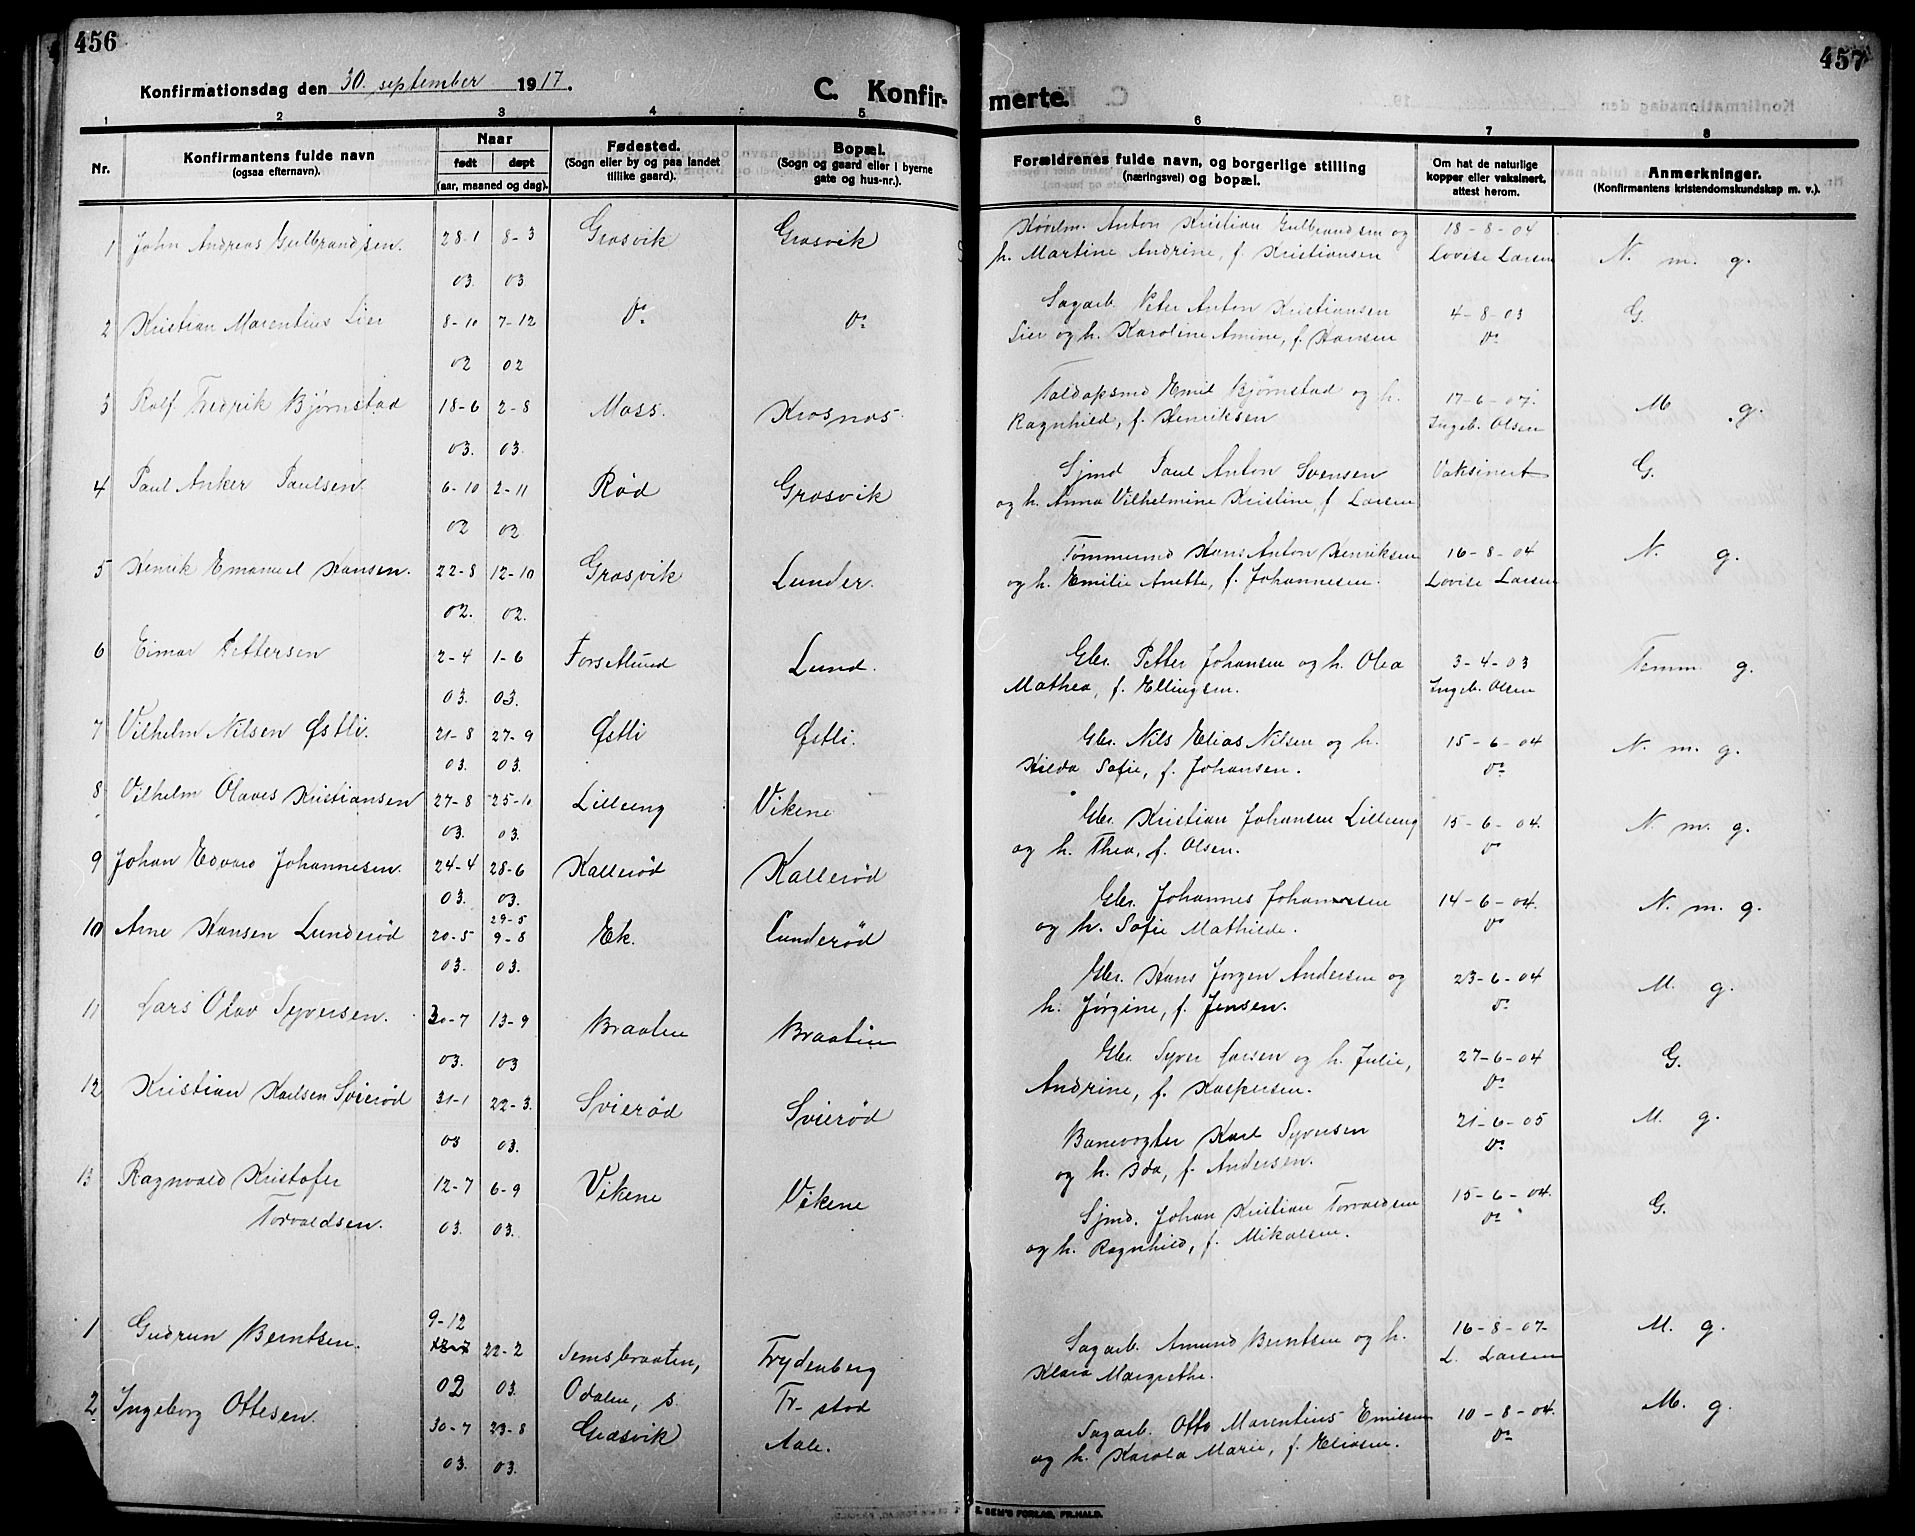 456
457
Konfirmationsdag den 30. september 1917.
C. Konfir-
merte.
1 2 3 4 5 6 7 8
Nr.
Konfirmantens fulde navn
(ogsaa efternavn).
Naar
født døpt
(aar, maaned og dag).
Fødested.
(Sogn eller by og paa landet
tillike gaard).
Bopæl.
(Sogn og gaard eller i byerne
gate og hus-nr.).
Forældrenes fulde navn, og borgerlige stilling
(næringsvei) og bopæl.
Om hat de naturlige
kopper eller vaksinert,
attest herom.
Anmerkninger.
(Konfirmantens kristendomskundskap m. v.).
1 John Andreas Gulbrandsen. 28-1 8-3 Græsvik Græsvik Anton Kristian Gulbrandsen og 18-8-04
03. 03 h. Martine Andrine, f. Kristiansen Lovise Larsen N. m. g.
2 Kristian Marentius Lier 8-10 7-12 Do Do Sagarb. Peter Anton Kristiansen 4-8-03 G.
02 02 Lier og h. Karoline Amine, f. Hansen Do
3 Rolf Fredrik Bjørnstad 18-6 2-8 Moss. Krosnes. Toldopsmd Emil Bjørnstad og h. 17-6-07. M g.
03. 03. Ragnhild, f. Henriksen Ingeb. Olsen
4 Paul Anker Paulsen. 6-10 2-11 Rød Græsvik Sjmd Paul Anton Svensen Vaksinert G.
02 02 og h. Anna Vilhelmine Kristine, f. Larsen
5 Henrik Emanuel Hansen. 22-8 12-10 Græsvik Lunder. Tømmermd Hans Anton Henriksen 16-8-04 N. g.
02. 02. og h. Emilie Anette, f. Johannesen. Lovise Larsen
6 Einar Pettersen 2-4 1-6 Forsetlund Lund. Gbr. Petter Johansen og h. Olea 3-4-03 Temm. g.
03. 03. Mathea, f. Ellingsen. Ingeb. Olsen
7 Vilhelm Nilsen Østli. 21-8 27-9 Østli Østli. Gbr. Nils Elias Nilsen og h. 15-6-04 N. m. g.
03. 03. Hilda Sofie, f. Johansen. Do
8 Vilhelm Olaves Kristiansen 27-8 25-10 Lilleeng Vikene Gbr. Kristian Johansen Lilleeng 15-6-04. N. m. g.
03. 03. og h. Thea, f. Olsen. Do
9 Johan Edvard Johannesen. 24-4 28-6 Kallerød Kallerød Gbr. Johannes Johannesen 14-6-04. N. m. g.
03. 03. og h. Sofie Mathilde. Do
29-5
10 Arne Hansen Lunderød 20-5 9-8 Ek. Lunderød Gbr. Hans Jørgen Andersen og 23-6-04 M. g.
03. 03. h. Jørgine, f. Jensen. Do
11 Lars Olav Syversen. 30-7 13-9 Braaten Braaten Gbr. Syver Larsen og h. Julie, 27-6-04 G.
03. 03 Andrine, f. Kaspersen. Do
12 Kristian Karlsen Svierød 31-1 22-3. Svierød Svierød Banevogter Karl Syversen 21-6-05 M. g.
03 03. og h. Ida, f. Andersen. Do
13 Ragnvald Kristofer 12-7 6-9 Vikene Vikene Sjmd. Johan Kristian Torvaldsen 15-6-04. G.
Torvaldsen. 03. 03. og h. Ragnhild, f. Mikalsen. Do
9-12
1 Gudrun Berntsen. 22-2 Semsbraaten, Trydenberg Sagarb. Amund Berntsen og h. 16-8-07. M. g.
02 03. Odalen, s. Tr-stad Klara Margrethe. L. Larsen
2 Ingeborg Ottesen. 30-7 23-8 Græsvik Aale. Sagarb. Otto Marentius Emilsen 10-8-04. M. g.
03. 03. og h. Karola Marie, f. Eliasen. Do
E. SEM'S FORLAG, FR.HALD.